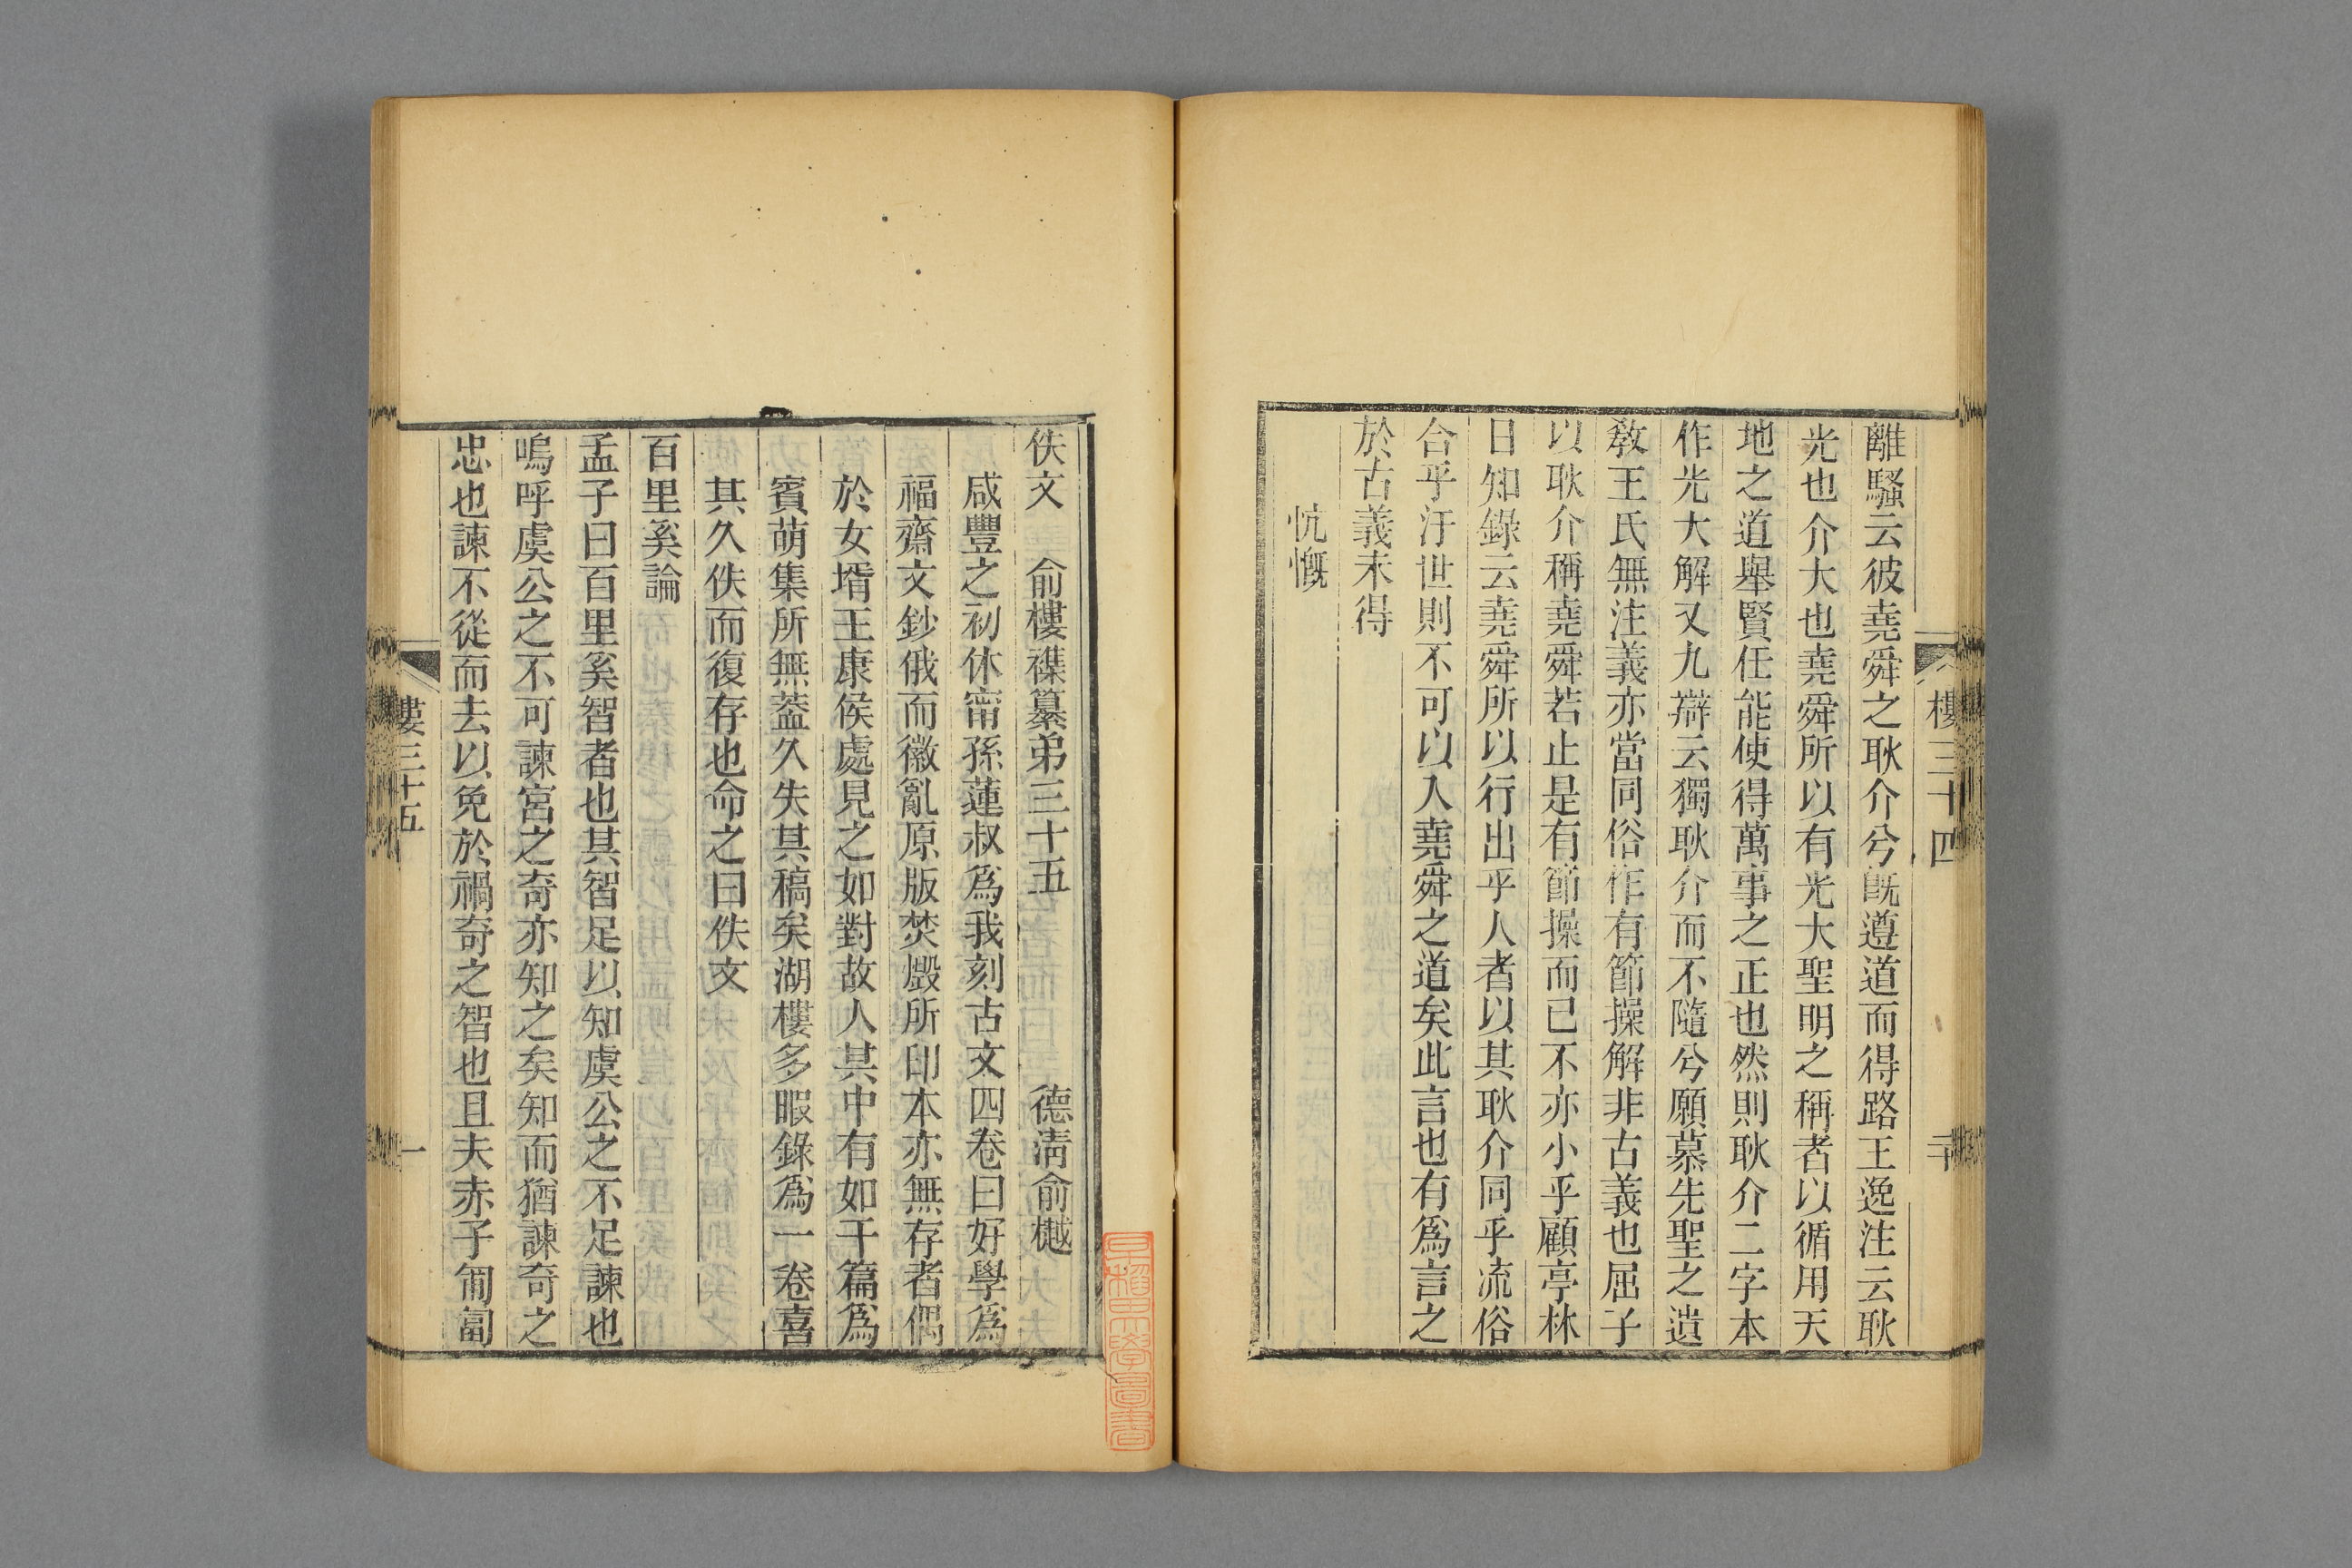 離騷云彼堯舜之耿介兮既遵道而得路王逸注云耿
光也介大也堯舜所以有光大聖明之稱者以循用天
地之道舉賢任能使得萬事之正也然則耿介二字本
作光大解又九辯云獨耿介而不隨兮願慕先聖之遺
敎王氏無注義亦當同俗作有節操解非古義也屈子
以耿介稱堯舜若止是有節操而已不亦小乎顧亭林
日知錄云堯舜所以行出乎人者以其耿介同乎流俗
合乎汙世則不可以入堯舜之道矣此言也有爲言之
於古義未得
忼慨
樓三十四
二十
佚文 俞樓襍纂弟三十五 德淸俞樾
咸豐之初休甯孫蓮叔爲我刻古文四卷曰好學爲
福齋文鈔俄而徽亂原版焚燬所印本亦無存者偶
於女壻王康侯處見之如對故人其中有如干篇爲
賓萌集所無葢久失其稿矣湖樓多暇錄爲一卷喜
其久佚而復存也命之曰佚文
百里奚論
孟子曰百里奚智者也其智足以知虞公之不足諫也
嗚呼虞公之不可諫宮之奇亦知之矣知而猶諫奇之
忠也諫不從而去以免於禍奇之智也且夫赤子匍匐
樓三十五
一
早稻田大學圖書